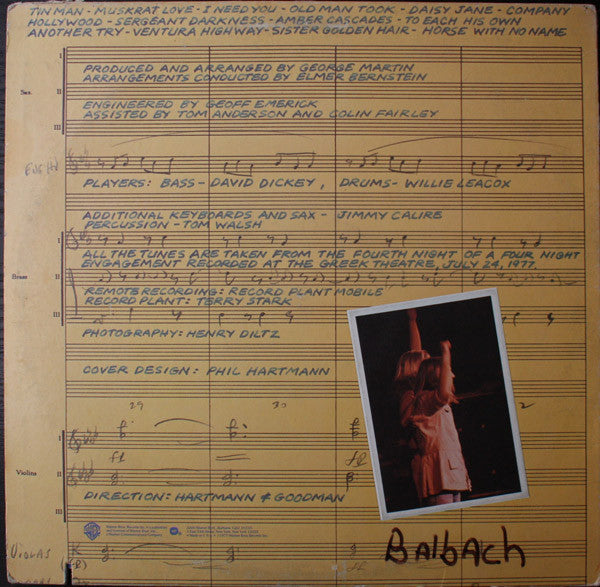 TIN MAN - MUSKRAT LOVE - I NEED YOU - OLD MAN TOOK - DAISY JANE - COMPANY
HOLLYWOOD - SERGEANT DARKNESS - AMBER CASCADES - TO EACH HIS OWN
ANOTHER TRY - VENTURA HIGHWAY - SISTER GOLDEN HAIR - HORSE WITH NO NAME
I
PRODUCED AND ARRANGED BY GEORGE MARTIN
ARRANGEMENTS CONDUCTED BY ELMER BERNSTEIN
Sax.
II
ENGINEERED BY GEOFF EMERICK
ASSISTED BY TOM ANDERSON AND COLIN FAIRLEY
III
PLAYERS: BASS - DAVID DICKEY, DRUMS - WILLIE LEACOX
ADDITIONAL KEYBOARDS AND SAX - JIMMY CALIRE
PERCUSSION - TOM WALSH
I
ALL THE TUNES ARE TAKEN FROM THE FOURTH NIGHT OF A FOUR NIGHT
ENGAGEMENT RECORDED AT THE GREEK THEATRE, JULY 24, 1977.
Brass
II
REMOTE RECORDING: RECORD PLANT MOBILE
RECORD PLANT: TERRY STARK
III
PHOTOGRAPHY: HENRY DILTZ
COVER DESIGN: PHIL HARTMANN
29 30 2
I
ff ff
Violins
II
DIRECTION: HARTMANN & GOODMAN
III
Balbach
Violas